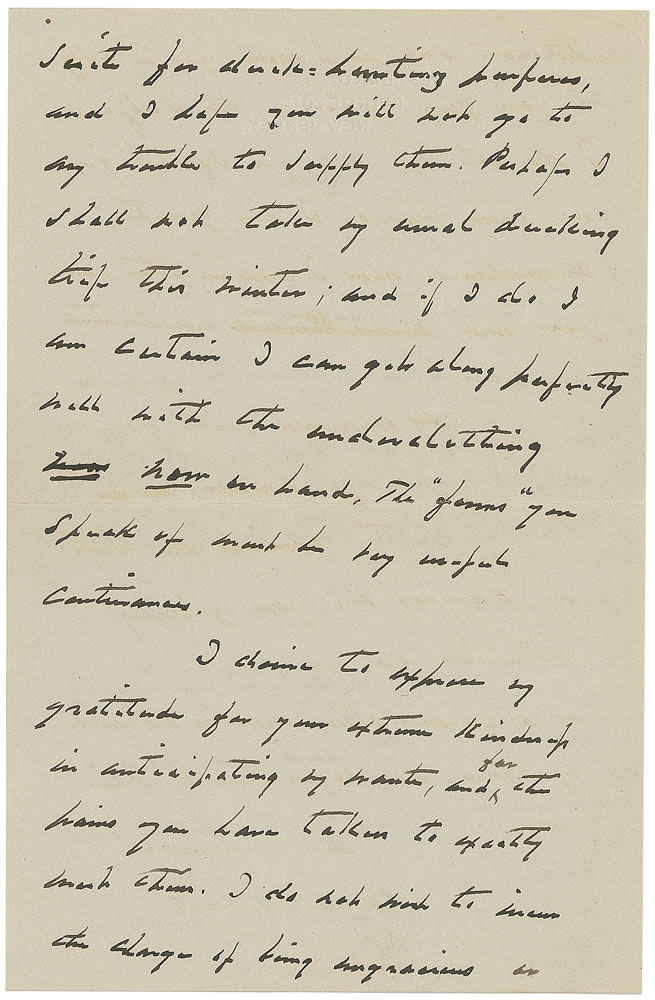 suits for duck-hunting purposes,
and I hope you will not go to
any trouble to supply them. Perhaps I
shall not take my usual ducking
trip this winter; and if I do I
am certain I can get along perfectly
well with the underclothing
now on hand. The "forms" you
speak of must be very useful
contrivances.
I desire to express my
gratitude for your extreme kindness
in anticipating my wants, and for the
pains you have taken to exactly
meet them. I do not wish to incur
the charge of being ungracious or